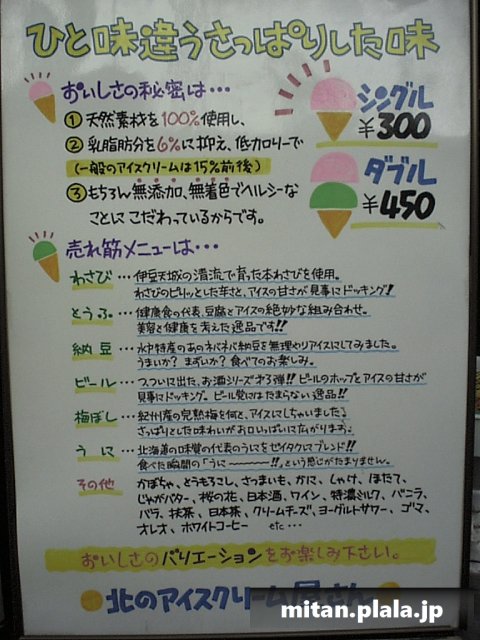 ひと味違うさっぱりした味
おいしさの秘密は…
① 天然素材を100%使用し、
② 乳脂肪分を6%に抑え、低カロリーで
(一般のアイスクリームは15%前後)
③ もちろん無添加、無着色でヘルシーな
ことにこだわっているからです。
シングル
¥300
ダブル
¥450
売れ筋メニューは…
わさび … 伊豆天城の清流で育った本わさびを使用。
わさびのピリッとした辛さと、アイスの甘さが見事にドッキング!
とうふ … 健康食の代表、豆腐とアイスの絶妙な組み合わせ。
美容と健康を考えた逸品です!!
納豆 … 水戸特産のあのネバネバ納豆を無理やりアイスにしてみました。
うまいか? まずいか? 食べてのお楽しみ。
ビール … ついに出た、お酒シリーズ第3弾!! ビールのホップとアイスの甘さが
見事にドッキング。ビール党にはたまらない逸品!!
梅ぼし … 紀州産の完熟梅を何と、アイスにしちゃいました。
さっぱりとした味わいがお口いっぱいに広がります。
うに … 北海道の味覚の代表のうにをゼイタクにブレンド!!
食べた瞬間の「うに〜〜!!」という感じがたまりません。
その他 かぼちゃ、とうもろこし、さつまいも、かに、しゃけ、ほたて、
じゃがバター、桜の花、日本酒、ワイン、特濃ミルク、バニラ、
バラ、抹茶、日本茶、クリームチーズ、ヨーグルトサワー、ゴマ、
オレオ、ホワイトコーヒー etc…
おいしさのバリエーションをお楽しみ下さい。
北のアイスクリーム屋さん
mitan.plala.jp